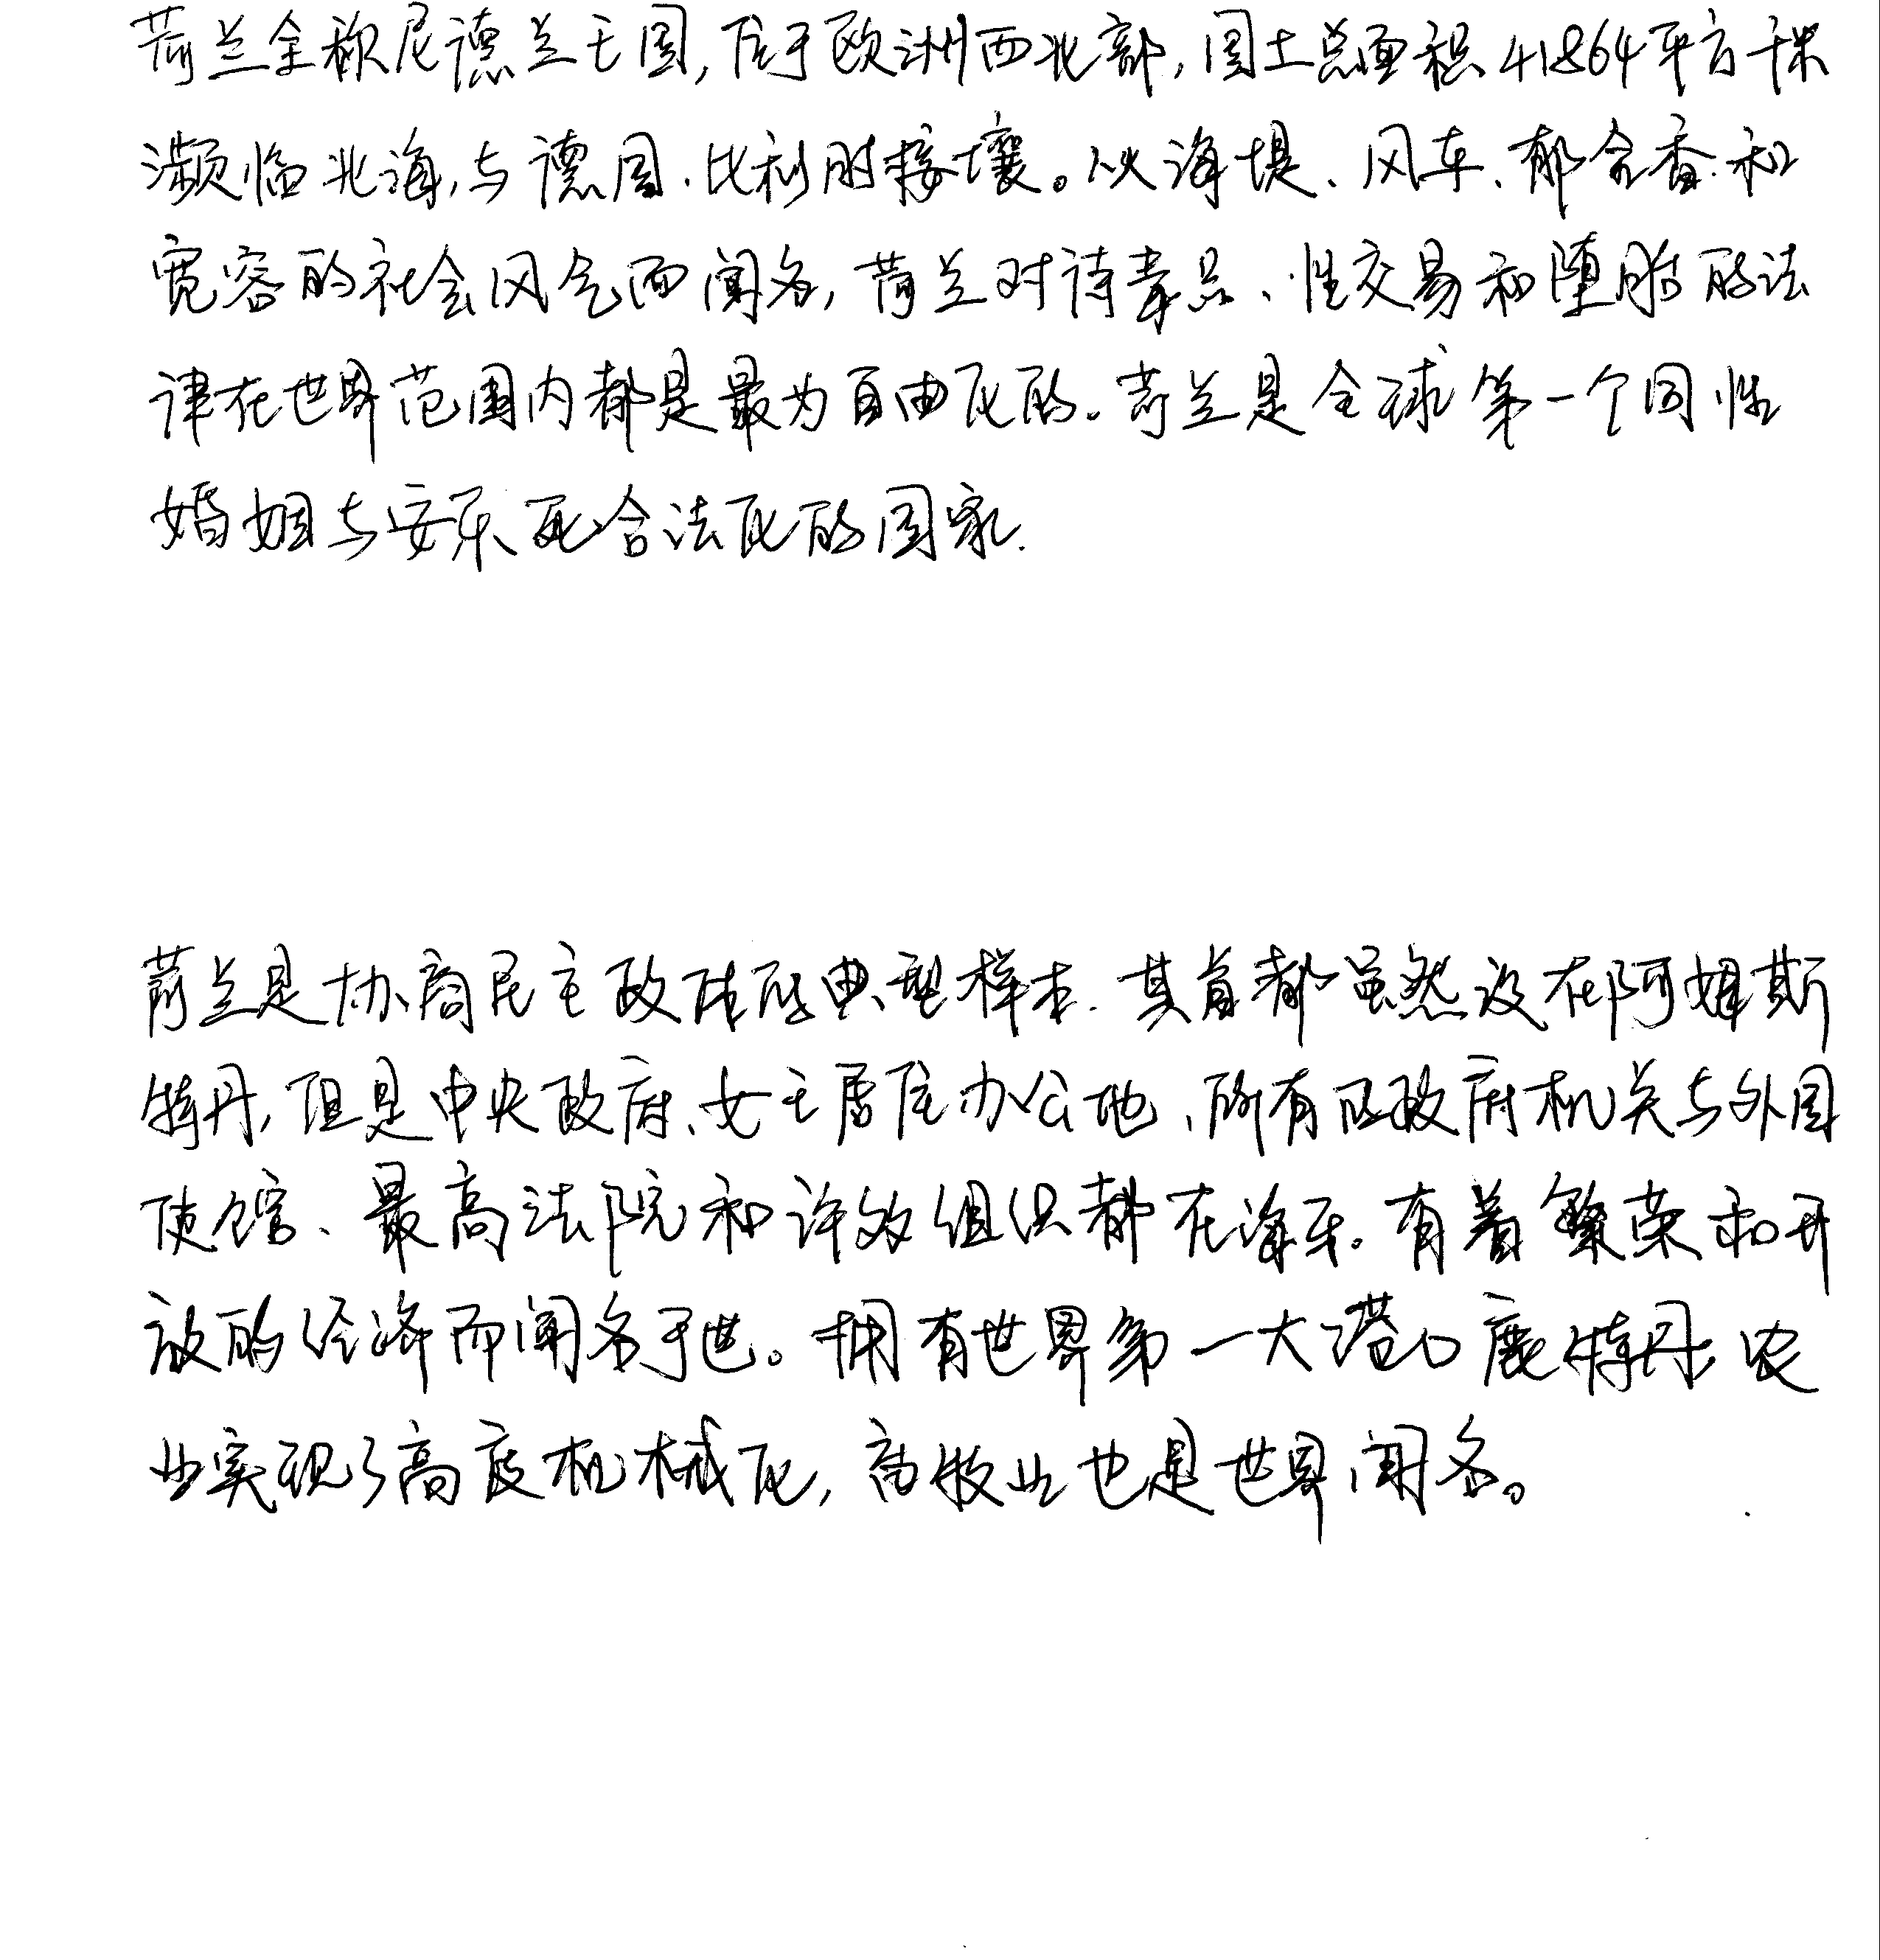 荷兰全称尼德兰王国,位于欧洲西北部,国土总面积41864平方千米
濒临北海,与德国、比利时接壤。以海堤、风车、郁金香和
宽容的社会风气而闻名,荷兰对待毒品、性交易和堕胎的法
律在世界范围内都是最为自由化的.荷兰是全球第一个同性
婚姻与安乐死合法化的国家.
荷兰是协商民主政体的典型样本.其首都虽然设在阿姆斯
特丹,但是中央政府、女王居住办公地、所有的政府机关与外国
使馆、最高法院和许多组织都在海牙.有着繁荣和开
放的经济而闻名于世。拥有世界第一大港口鹿特丹;农
业实现了高度机械化,畜牧业也是世界闻名。